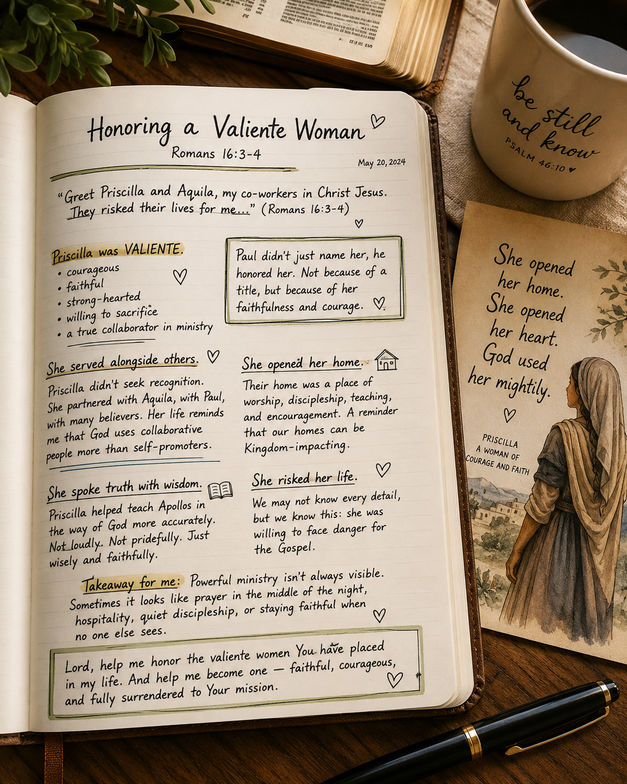 Honoring a Valiente Woman
Romans 16:3-4
May 20, 2024
"Greet Priscilla and Aquila, my co-workers in Christ Jesus.
They risked their lives for me...." (Romans 16:3-4)
Priscilla was VALIENTE.
• courageous
• faithful
• strong-hearted
• willing to sacrifice
• a true collaborator in ministry
Paul didn't just name her, he
honored her. Not because of a
title, but because of her
faithfulness and courage.
She served alongside others.
Priscilla didn't seek recognition.
She partnered with Aquila, with Paul,
with many believers. Her life reminds
me that God uses collaborative
people more than self-promoters.
She opened her home.
Their home was a place of
worship, discipleship, teaching,
and encouragement. A reminder
that our homes can be
Kingdom-impacting.
She spoke truth with wisdom.
Priscilla helped teach Apollos in
the way of God more accurately.
Not loudly. Not pridefully. Just
wisely and faithfully.
She risked her life.
We may not know every detail,
but we know this: she was
willing to face danger for
the Gospel.
Takeaway for me: Powerful ministry isn't always visible.
Sometimes it looks like prayer in the middle of the night,
hospitality, quiet discipleship, or staying faithful when
no one else sees.
Lord, help me honor the valiente women You have placed
in my life. And help me become one — faithful, courageous,
and fully surrendered to Your mission.
be still
and know
PSALM 46:10
She opened
her home.
She opened
her heart.
God used
her mightily.
PRISCILLA
A WOMAN OF
COURAGE AND FAITH